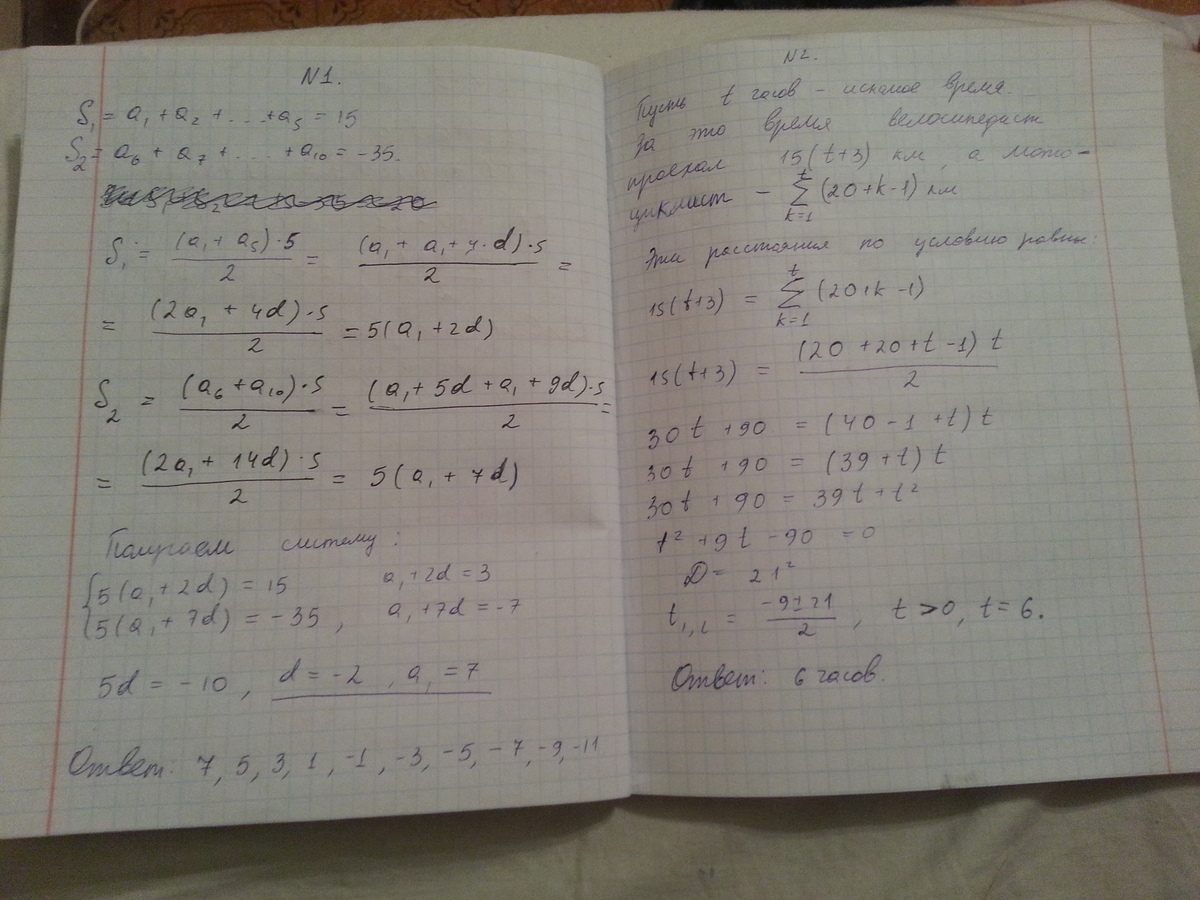 N1.
S₁ = a₁ + a₂ + ... + a₅ = 15
S₂ = a₆ + a₇ + ... + a₁₀ = -35.
S₁ = (a₁ + a₅)·5 / 2 = (a₁ + a₁ + 4·d)·5 / 2 =
= (2a₁ + 4d)·5 / 2 = 5(a₁ + 2d)
S₂ = (a₆ + a₁₀)·5 / 2 = (a₁ + 5d + a₁ + 9d)·5 / 2 =
= (2a₁ + 14d)·5 / 2 = 5(a₁ + 7d)
Получаем систему:
{5(a₁ + 2d) = 15 a₁ + 2d = 3
{5(a₁ + 7d) = -35, a₁ + 7d = -7
5d = -10, d = -2, a₁ = 7
Ответ: 7, 5, 3, 1, -1, -3, -5, -7, -9, -11
N2.
Пусть t часов - искомое время.
За это время велосипедист
проехал 15(t+3) км, а мото-
циклист - ∑ᵗₖ₌₁ (20+k-1) км
Эти расстояния по условию равны:
15(t+3) = ∑ᵗₖ₌₁ (20+k-1)
15(t+3) = (20 + 20 + t - 1) t / 2
30t + 90 = (40 - 1 + t) t
30t + 90 = (39 + t) t
30t + 90 = 39t + t²
t² + 9t - 90 = 0
D = 21²
t₁,₂ = -9±21 / 2, t > 0, t = 6.
Ответ: 6 часов.